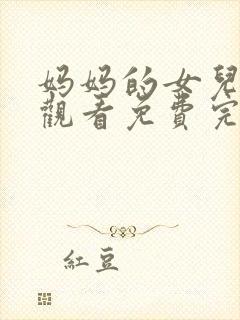 妈妈的女兒
觀看免費完
紅豆